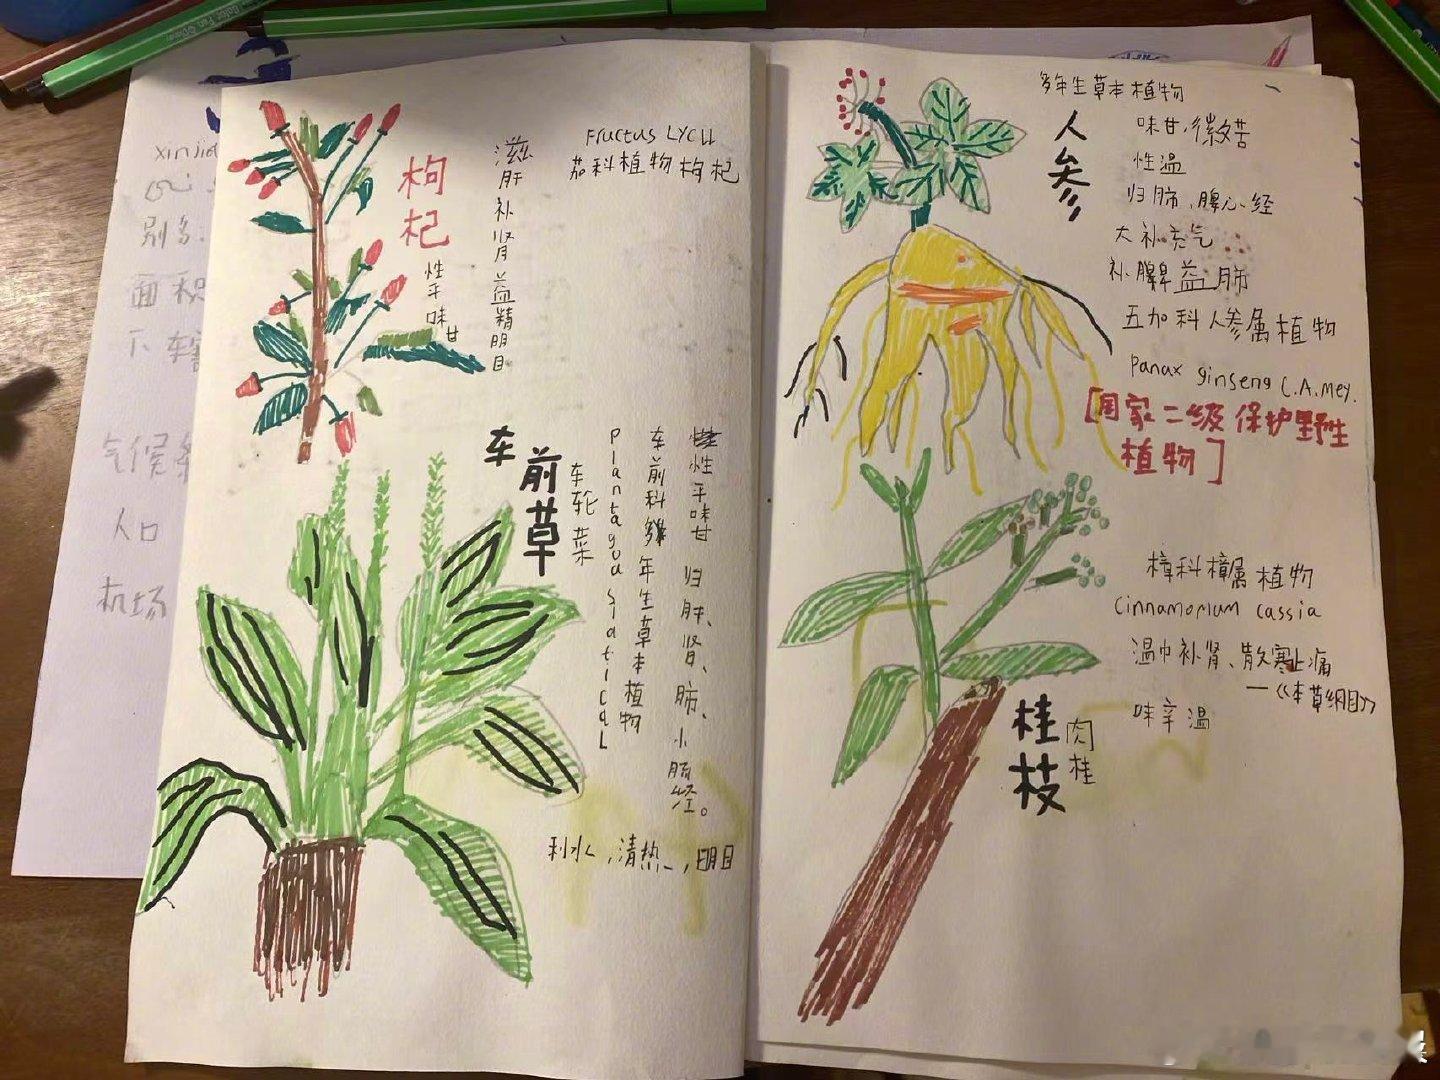 枸杞
性平味甘
滋肝补肾益精明目
Fructus LYCII
茄科植物枸杞
车前草
车轮菜
Plantagoa SiaticaL
车前科多年生草本植物
性平味甘 归肝、肾、肺、小肠经。
利水，清热，明目
多年生草本植物
人参
味甘、微苦
性温
归肺、脾、心、经
大补元气
补脾益肺
五加科人参属植物
Panax ginseng C.A.Mey.
[国家二级保护野生
植物]
樟科樟属植物
Cinnamomum cassia
温中补肾、散寒止痛
—《本草纲目》
味辛温
桂枝
肉桂
xinjia
别名.
面积
下辖
气候
人口
机场